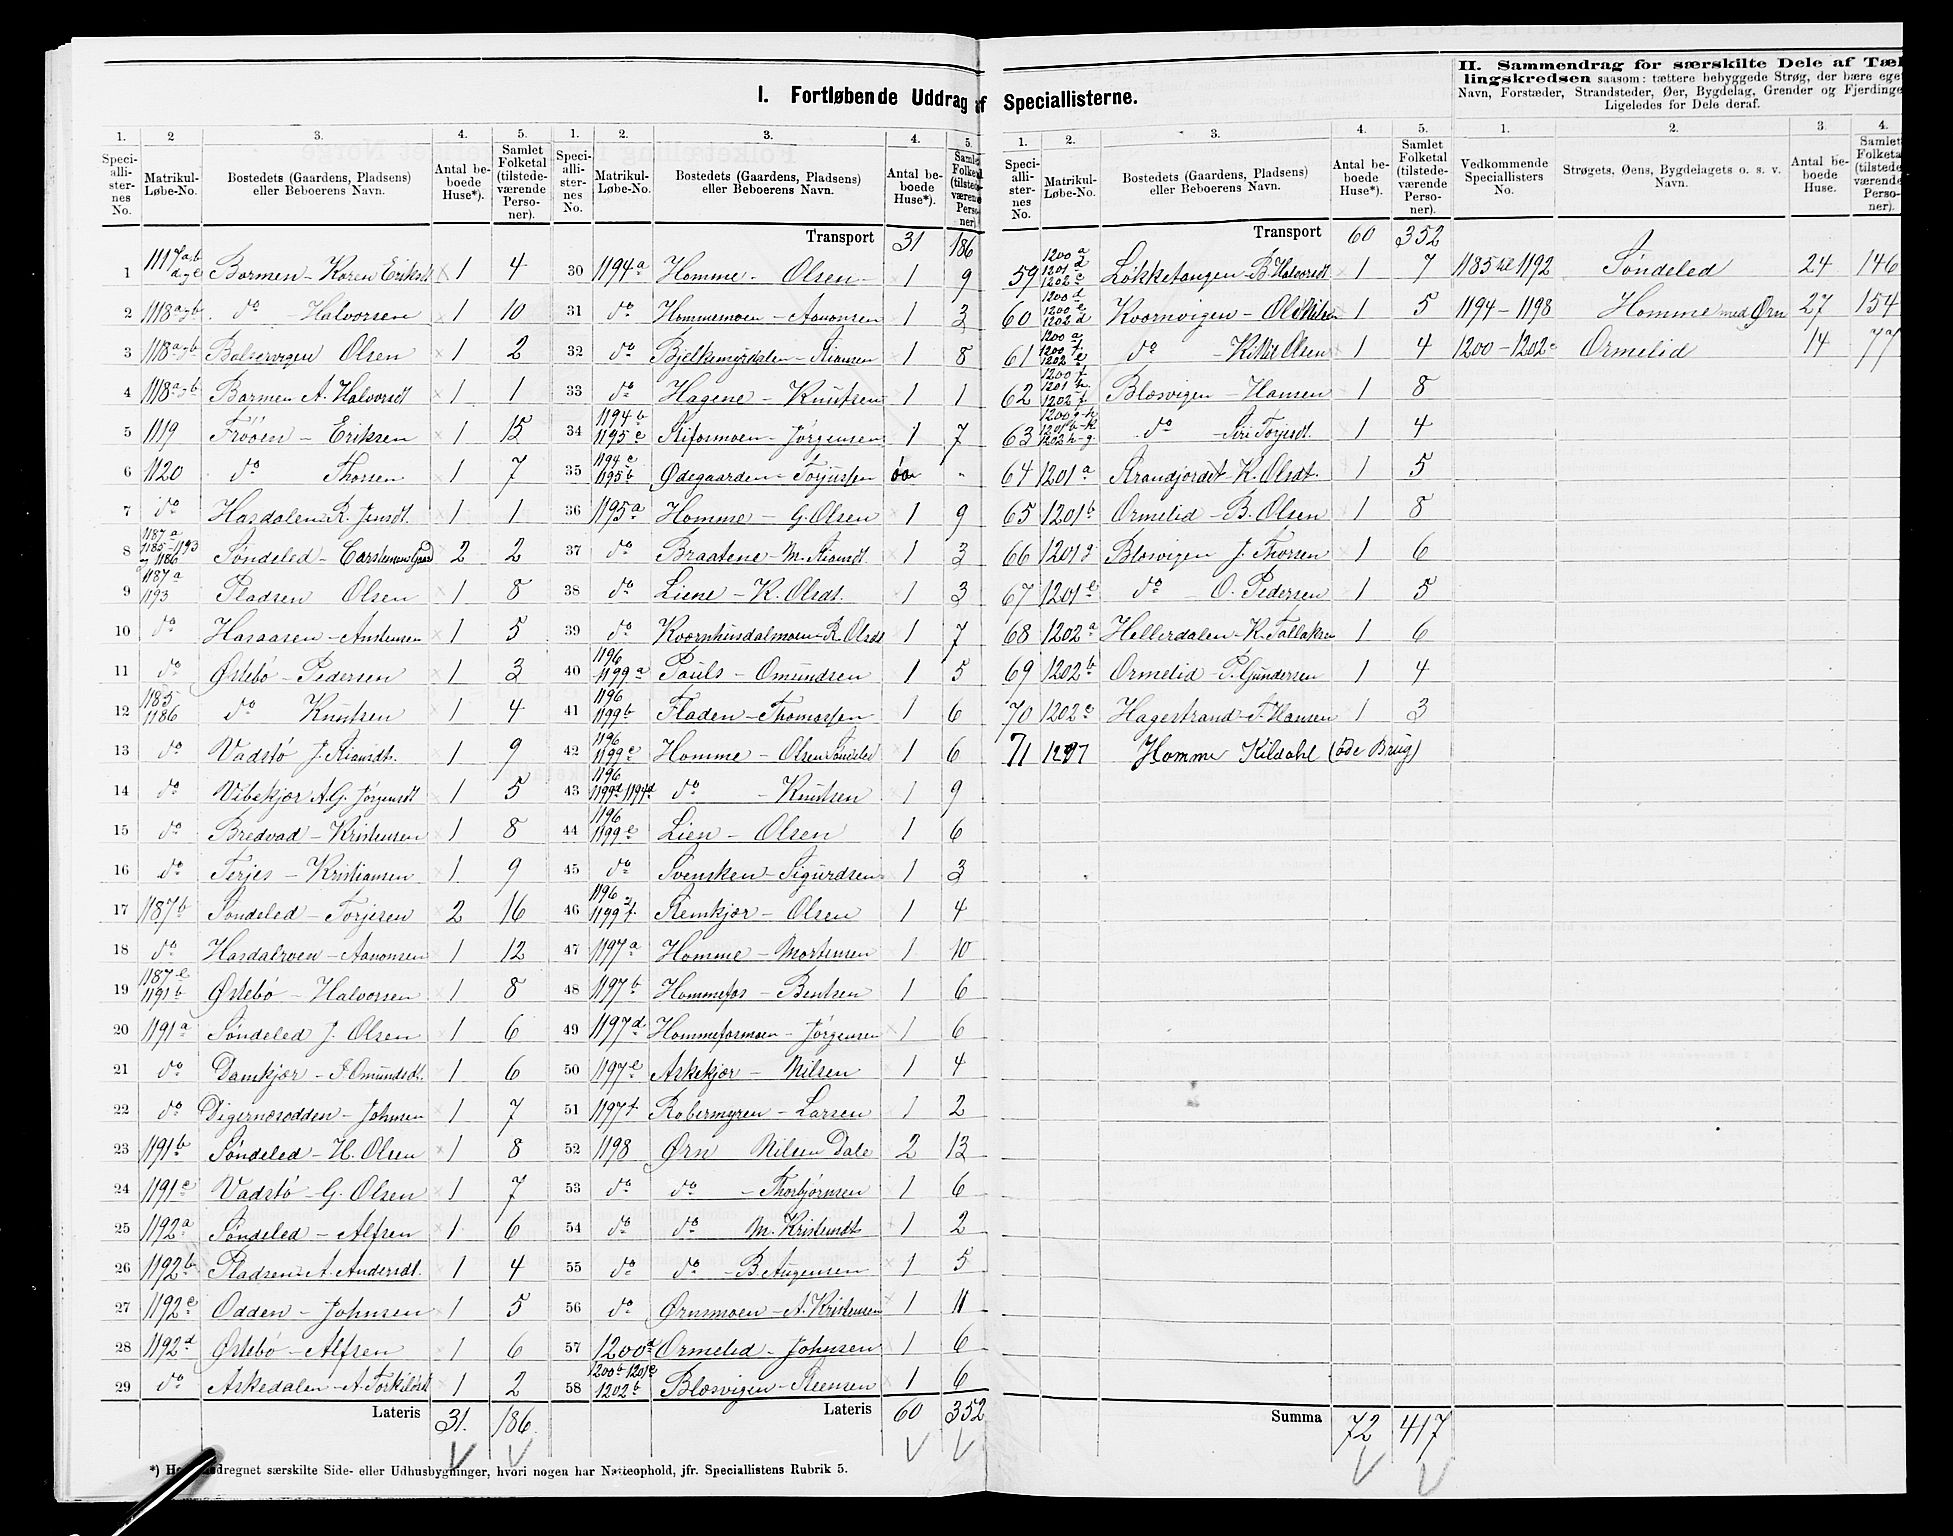 I. Fortløbende Uddrag af Speciallisterne.
II. Sammendrag for særskilte Dele af Tæl-
lingskredsen saasom: tættere bebyggede Strøg, der bære eget
Navn, Forstæder, Strandsteder, Øer, Bygdelag, Grender og Fjerdinge
Ligeledes for Dele deraf.
1. 2 3. 4. 5. 1. 2. 3. 4. 5.
Speciallisternes No. Matrikul-Løbe-No. Bostedets (Gaardens, Pladsens) eller Beboerens Navn. Antal beboede Huse*). Samlet Folketal (tilstedeværende Personer).
Transport 31 186
1 1117 a, b d, e Barmen - Karen Eriksdt. 1 4
2 1118 a, b do Halvorsen 1 10
3 1118 a, b Balservigen Olsen 1 2
4 1118 a, b Barmen A. Halvorsdt 1 1
5 1119 Frøen - Eriksen 1 15
6 1120 do Thorsen 1 7
7 do Hasdalen R. Jensdt. 1 1
8 1187 a 1185-1193 1186 Søndeled - Carstensens Gaard 2 2
9 1187 a 1193 Pladsen Olsen 1 8
10 do Hasaasen - Anstensen 1 5
11 do Østebø - Pedersen 1 3
12 1185 1186 do Knutsen 1 4
13 do Vadstø J. Kiansdt. 1 9
14 do Vibekjær A.G. Jørgensdt 1 5
15 do Bredvad - Kristensen 1 8
16 do Terjes - Kristiansen 1 9
17 1187 b Søndeled - Torjesen 2 16
18 do Hasdalroen - Aanonsen 1 12
19 1187 c 1191 b Østebø - Halvorsen 1 8
20 1191 a Søndeled J. Olsen 1 6
21 do Damkjær - Omundsdt. 1 6
22 do Digernæsodden - Johnsen 1 7
23 1191 b Søndeled - H. Olsen 1 8
24 1191 c Vadstø - G. Olsen 1 7
25 1192 a Søndeled - Alfsen 1 6
26 1192 b Pladsen A. Andersdt. 1 4
27 1192 c Odden - Johnsen 1 5
28 1192 d Østebø - Alfsen 1 6
29 do Askedalen - A. Torkildsdt 1 2
Lateris 31. 186.
30 1194 a Homme - Olsen 1 9
31 do Hommemoen - Aanonsen 1 3
32 do Bjelkemyrdalen - Kiansen 1 8
33 do Hagene - Knutsen 1 1
34 1194 b 1195 c Stifosmoen - Jørgensen 1 7
35 1194 c 1195 b Ødegaarden - Torjussen "
36 1195 a Homme - G. Olsen 1 9
37 do Braatene M. Kiansdt. 1 3
38 do Liene - K. Olsdt. 1 3
39 do Kværnhusdalmoen - R. Olsdt 1 7
40 1196 1199 a Pauls - Omundsen 1 5
41 1196 1199 b Fladen - Thomassen 1 6
42 1196 1199 c Homme - Olsen Søndeled 1 6
43 1196 1199 d 1194 d do - Knutsen 1 9
44 1196 1199 e Lien - Olsen 1 6
45 do Svensken - Sigurdsen 1 3
46 1196 1199 f. Stemkjær - Olsen 1 4
47 1197 a Homme - Mortensen 1 10
48 1197 b Hommefos - Bentsen 1 6
49 1197 d Hommefosmoen - Jørgensen 1 6
50 1197 e Askekjær - Nilsen 1 4
51 1197 f Røbermyren - Larsen 1 2
52 1198 Ørn Nilsen Dale 2 13
53 do do - Thorbjørnsen 1 6
54 do do M. Kristensdt 1 2
55 do do - B. Augensen 1 5
56 do Ørnsmoen - A. Kristensen 1 11
57 1200 d Ormelid - Johnsen 1 6
58 1200 b - 1201 c 1202 b Blæsvigen - Steensen 1 6
Lateris 60 352
*) Heri medregnet særskilte Side- eller Udhusbygninger, hvori nogen har Natteophold, jfr. Speciallistens Rubrik 5.
1. 2. 3. 4. 5. 1. 2. 3. 4.
Speciallisternes No. Matrikul-Løbe-No. Bostedets (Gaardens, Pladsens) eller Beboerens Navn. Antal beboede Huse*). Samlet Folketal (tilstedeværende Personer).
Vedkommende Speciallisters No. Strøgets, Øens, Bygdelagets o. s. v. Navn. Antal beboede Huse. Samlet Folketal (tilstedeværende Personer).
Transport 60 352
59 1200 a 1201 d 1202 c Løkketangen - B. Halvorsdt 1 7
60 1200 d 1200 e 1202 d Kværnvigen - Ol. Nilsen 1 5
61 1200 a 1200 f. 1202 e do - Olsen 1 4
62 1200 f. 1201 h. 1202 f. Blæsvigen - Hansen 1 8
63 1200 g-h 1201 b-k 1202 h-g. do - Siri Torjesdt. 1 4
64 1201 a Strandjordet - K. Olsdt. 1 5
65 1201 b Ormelid - B. Olsen 1 8
66 1201 g Blæsvigen J. Thorsen 1 6
67 1201 e do - O. Pedersen 1 5
68 1202 a Hellerdalen - K. Tallaksen 1 6
69 1202 b Ormelid - P. Gundersen 1 4
70 1202 c Hagestrand - Hansen 1 3
71 1297 Homme Kildahl (øde Brug)
1185 til 1192 Søndeled 24 146
1194 - 1198 Homme med Ørn 27 154
1200 - 1202 Ormelid 14 77
Summa 72 417